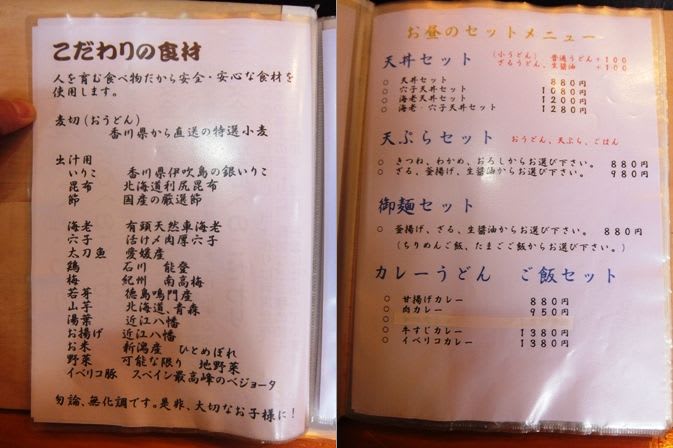 こだわりの食材
人を育む食べ物だから安全・安心な食材を
使用します。
麦切(おうどん)
香川県から直送の特選小麦
出汁用
いりこ 香川県伊吹島の銀いりこ
昆布 北海道利尻昆布
節 国産の厳選節
海老 有頭天然車海老
穴子 活け〆肉厚穴子
太刀魚 愛媛産
鶏 石川 能登
梅 紀州 南高梅
若芽 徳島鳴門産
山芋 北海道、青森
湯葉 近江八幡
お揚げ 近江八幡
お米 新潟産 ひとめぼれ
野菜 可能な限り 地野菜
イベリコ豚 スペイン最高峰のベジョータ
勿論、無化調です。是非、大切なお子様に!
お昼のセットメニュー
天丼セット (小うどん) 普通うどん+100
ざるうどん、生醤油 +100
○ 天丼セット 880円
○ 穴子天丼セット 1080円
○ 海老天丼セット 1200円
○ 海老・穴子天丼セット 1280円
天ぷらセット おうどん、天ぷら、ごはん
○ きつね、わかめ、おろしからお選び下さい。 880円
○ ざる、釜揚げ、生醤油からお選び下さい。 980円
御麺セット
○ 釜揚げ、ざる、生醤油からお選び下さい。 880円
(ちりめんご飯、たまごご飯からお選び下さい。)
カレーうどん ご飯セット
○ 甘揚げカレー 880円
○ 肉カレー 950円
○
○ 牛すじカレー 1380円
○ イベリコカレー 1380円